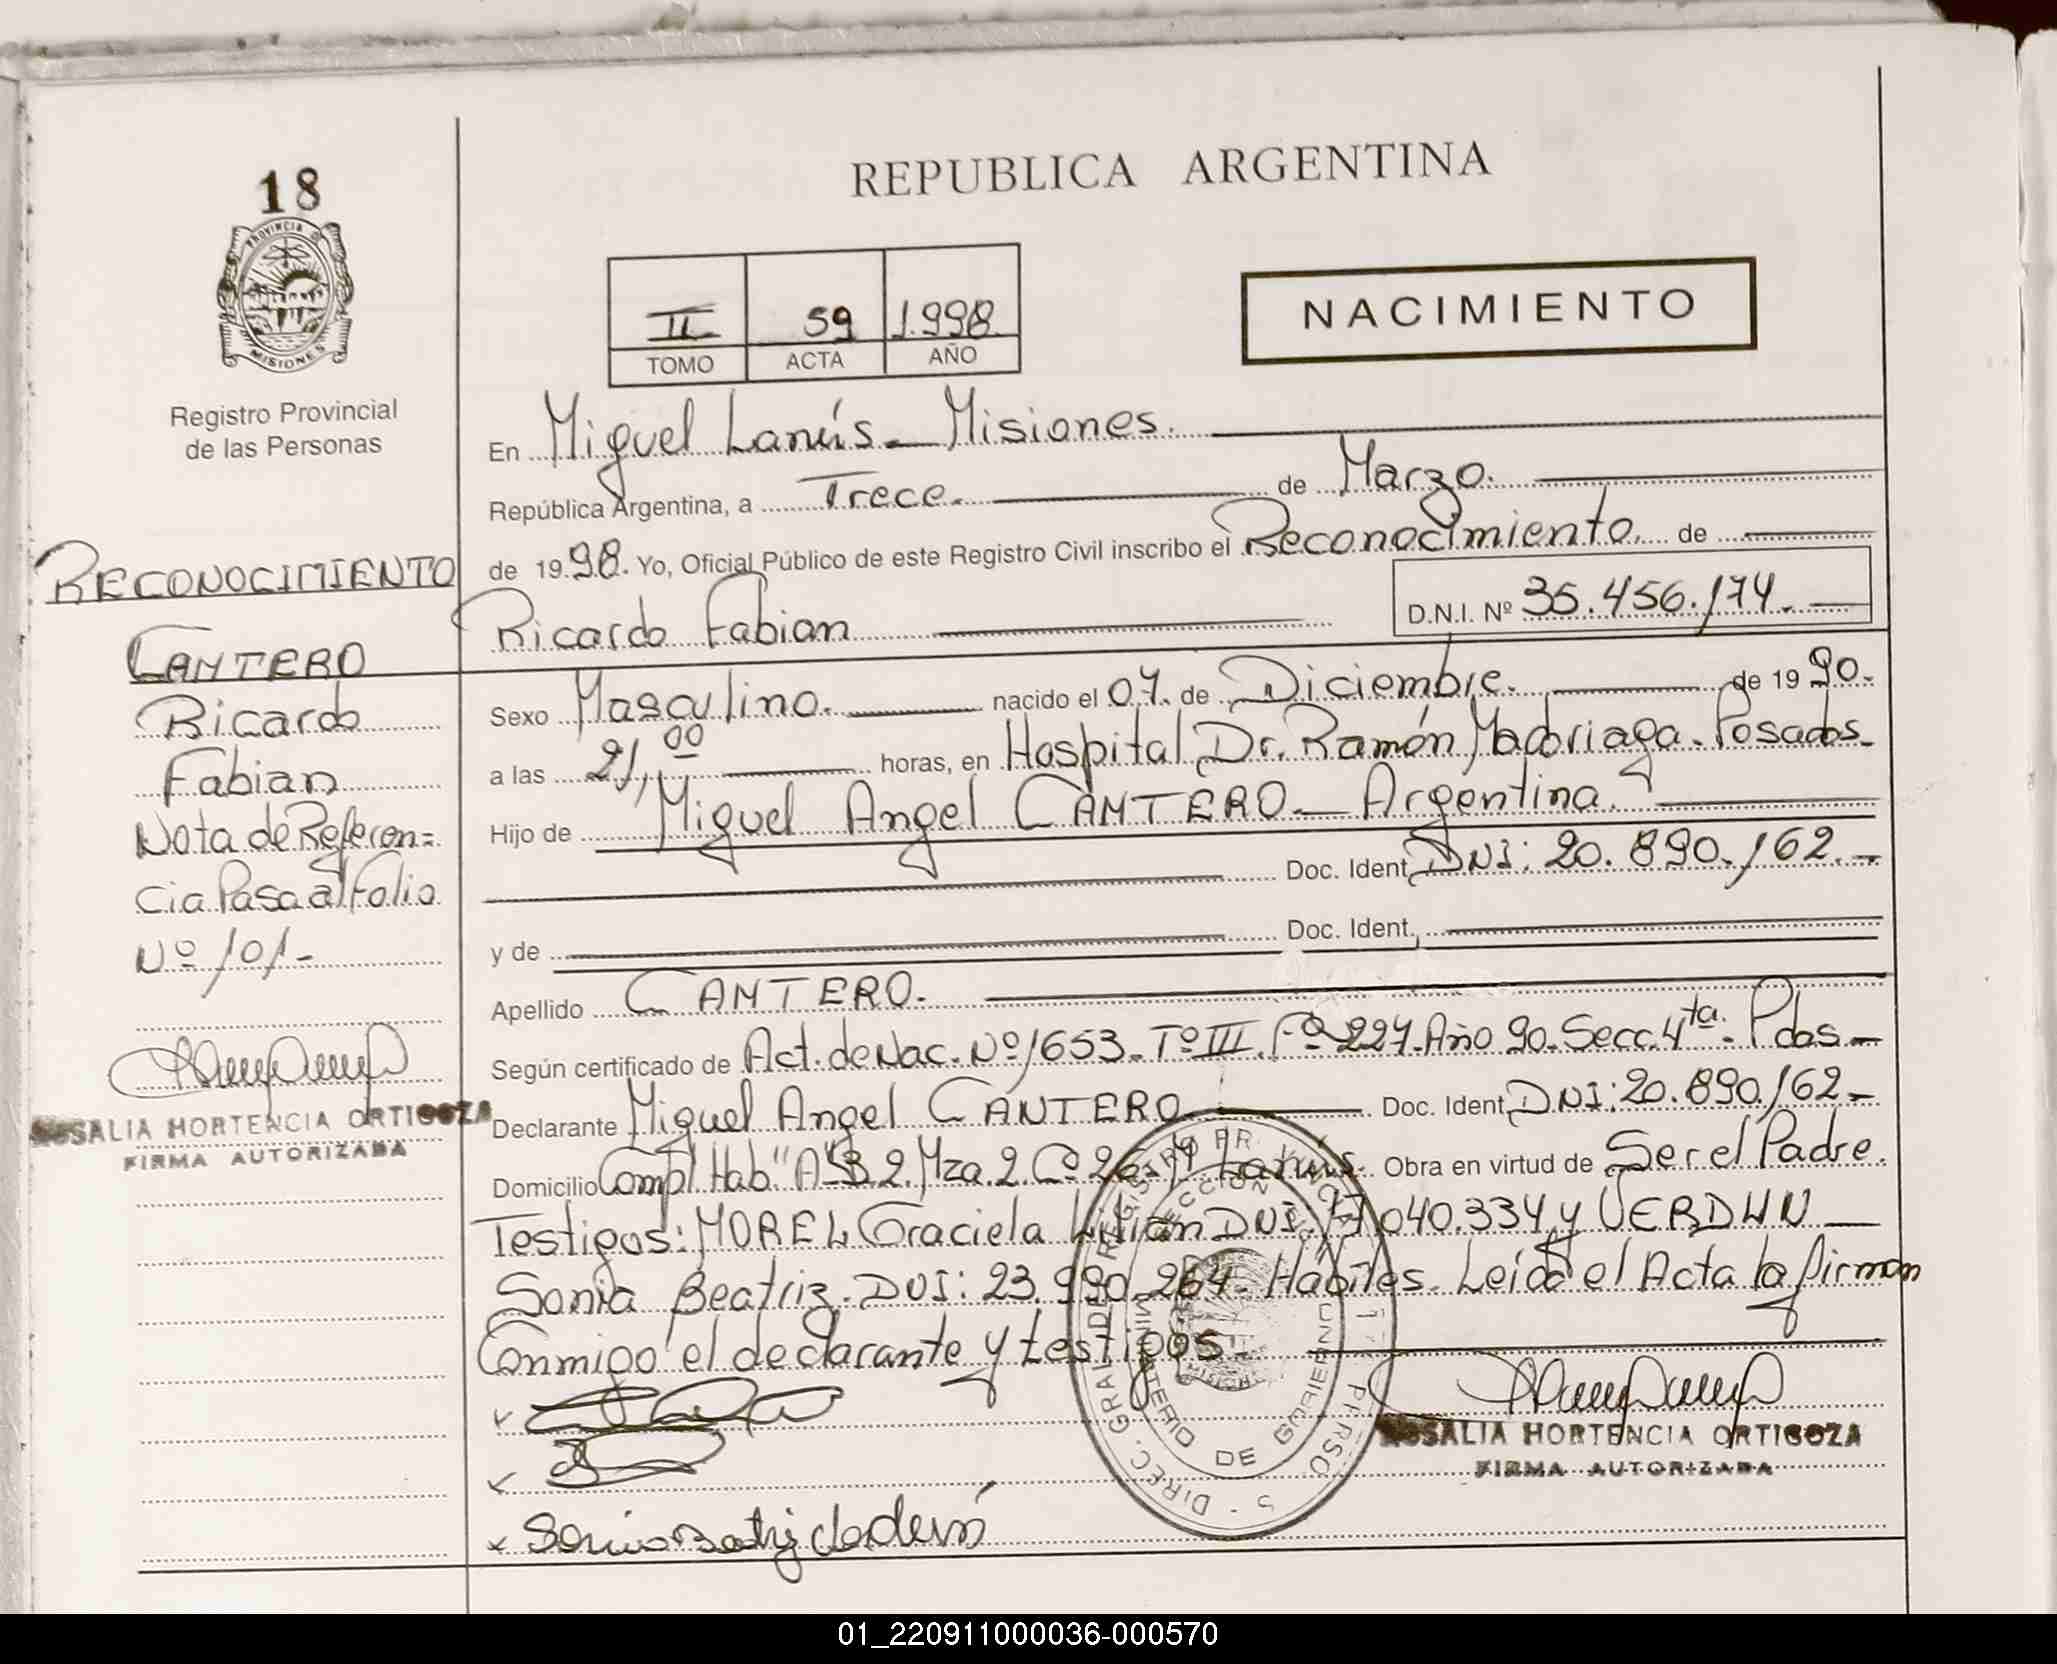 18
PROVINCIA D
MISIONES
Registro Provincial
de las Personas
RECONOCIMIENTO
CANTERO
Ricardo
Fabian
Nota de Referen=
cia Pasa al Folio
Nº 101-
ROSALIA HORTENCIA ORTIGOZA
FIRMA AUTORIZADA
REPUBLICA ARGENTINA
II 59 1.998
TOMO ACTA AÑO
NACIMIENTO
En Miguel Lanús - Misiones.
República Argentina, a Trece. de Marzo.
de 1998. Yo, Oficial Público de este Registro Civil inscribo el Reconocimiento de
Ricardo Fabian D.N.I. Nº 35.456.174.
Sexo Masculino. nacido el 07 de Diciembre. de 1990.
a las 21,00 horas, en Hospital Dr. Ramón Madariaga. Posadas
Hijo de Miguel Angel CANTERO - Argentina.
Doc. Ident. DNI: 20.890.162.-
y de Doc. Ident.
Apellido CANTERO.
Según certificado de Act. de Nac. Nº 1653. Tº III. Fº 227. Año 90. Secc. 4ta. Pdas-
Declarante Miguel Angel CANTERO Doc. Ident. DNI: 20.890.162-
Domicilio Compl Hab "A" B.2. Mza. 2. Cº 26. M Lanús. Obra en virtud de Ser el Padre.
Testigos: MOREL Graciela Lilian DNI. 17.040.334 y VERDUN
Sonia Beatriz. DNI: 23.990.264. Hábiles. Leida el Acta la firman
Conmigo el declarante y testigos.
ROSALIA HORTENCIA ORTIGOZA
FIRMA AUTORIZADA
MINISTERIO DE GOBIERNO
01_220911000036-000570